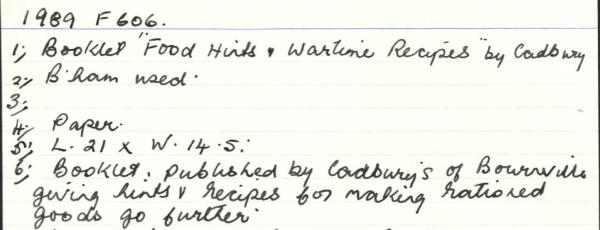 1989 F 606.
1; Booklet "Food Hints & Wartime Recipes" by Cadbury
2; B'ham used.
3;
4; Paper.
5; L. 21 x W. 14.5;
6; Booklet, published by Cadbury's of Bournville
giving hints & recipes for making rationed
goods go further.